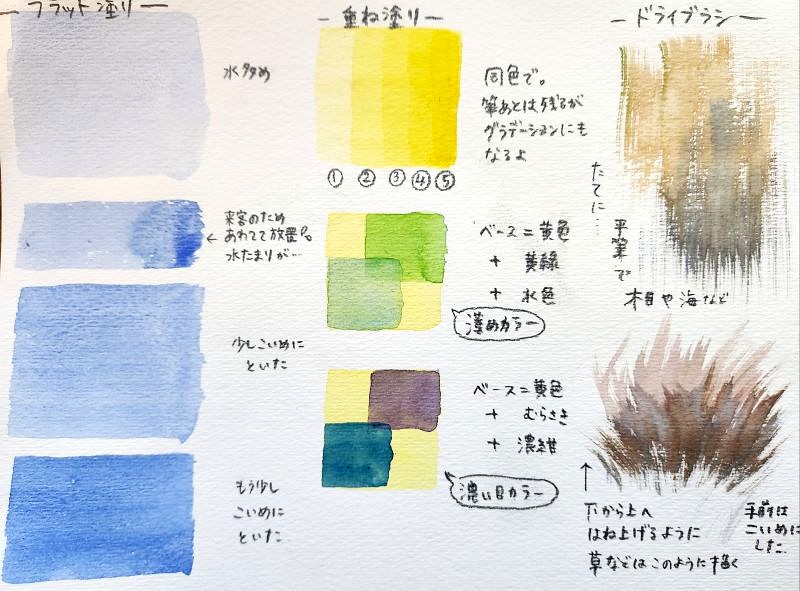 フラット塗り
水多め
来客のため
あわてて放置。
水たまりが…
少しこいめに
といた
もう少し
こいめに
といた
重ね塗り
同色で。
筆あとは残るが
グラデーションにも
なるよ
① ② ③ ④ ⑤
ベース=黄色
+ 黄緑
+ 水色
薄めカラー
ベース=黄色
+ むらさき
+ 濃紺
濃い目カラー
ドライブラシ
たてに…
平筆で
木目や海など
下から上へ
はね上げるように
草などはこのように描く
手前は
こいめに
した…